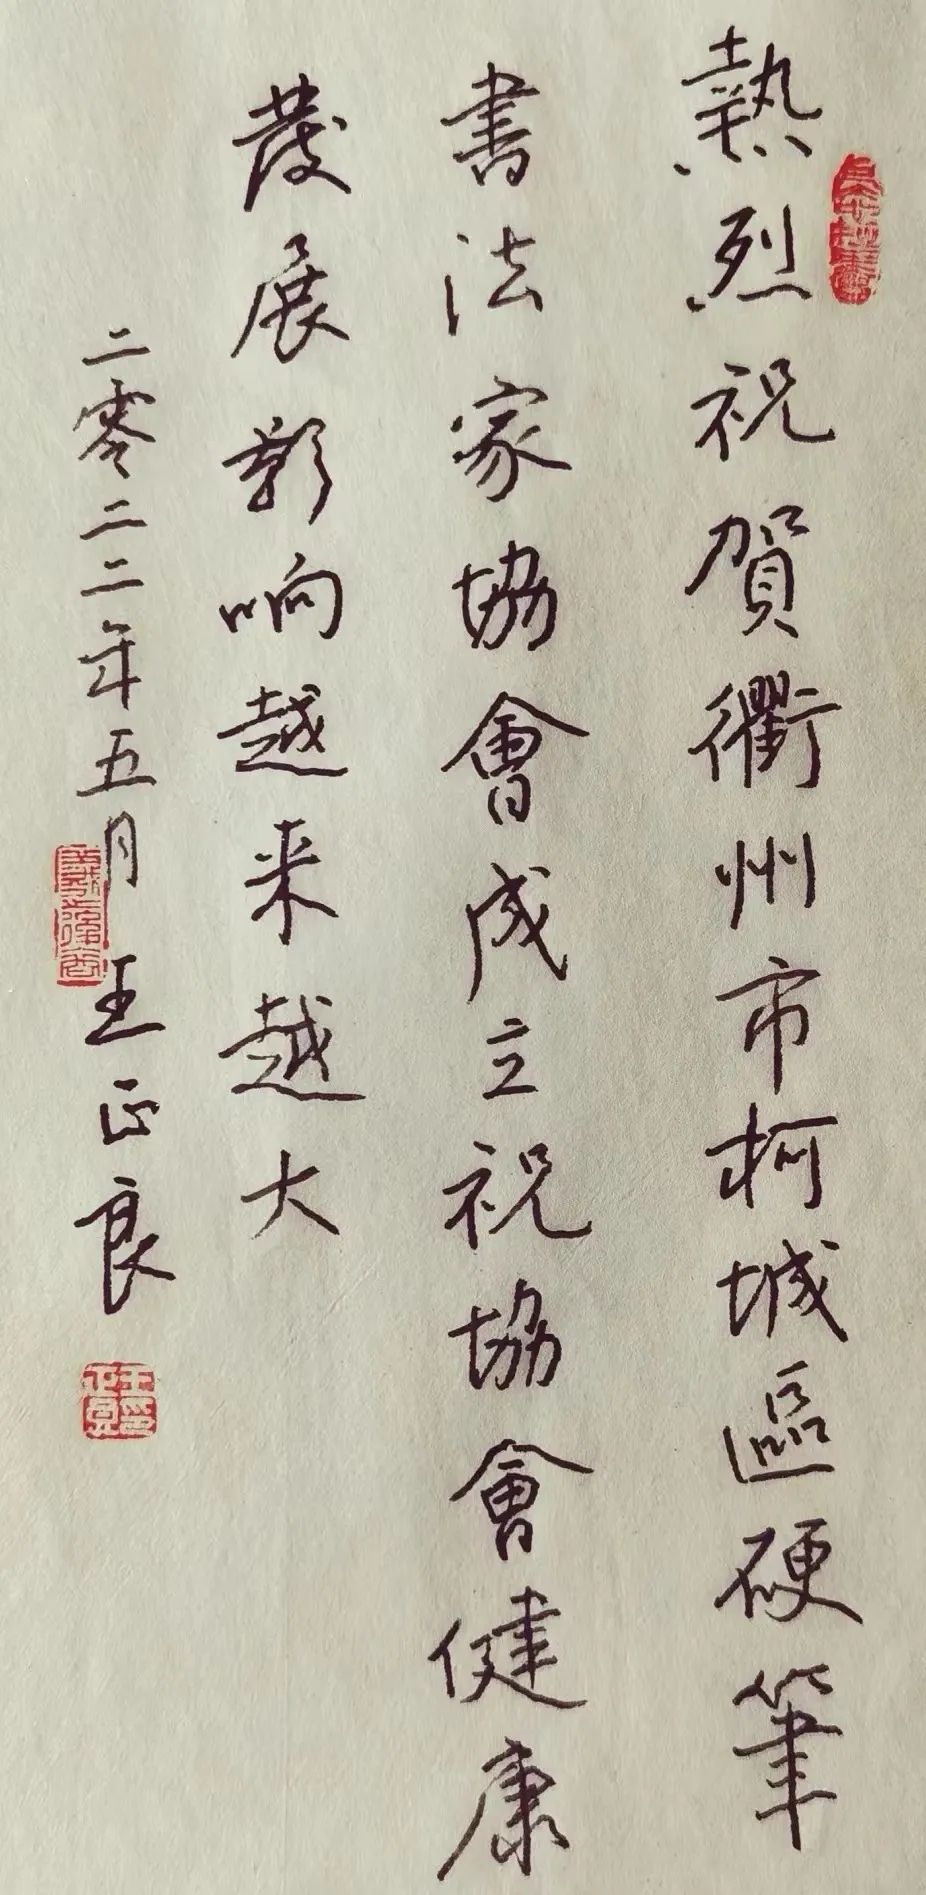 熱烈祝賀衢州市柯城區硬筆
書法家協會成立祝協會健康
發展影响越来越大
二零二二年五月 王正良